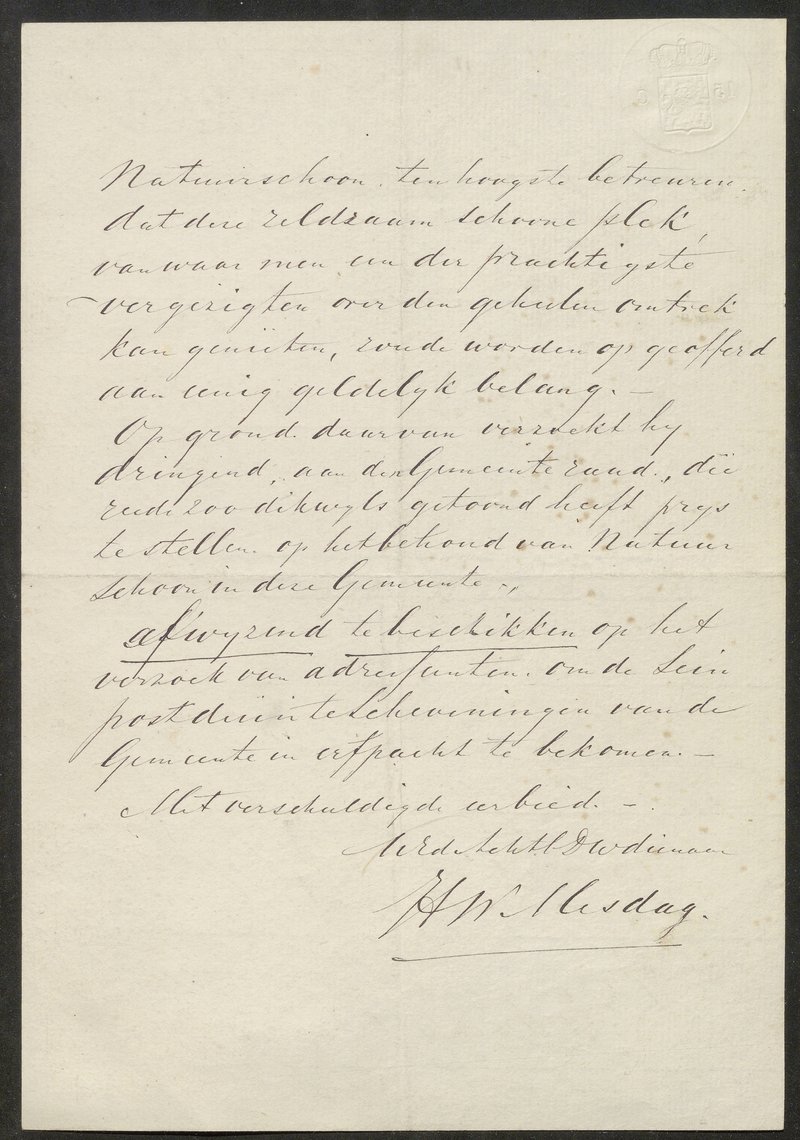 Natuurschoon, ten hoogste betreuren,
dat deze zeldzaam schoone plek,
van waar men een der prachtigste
vergezigten over den geheelen omtrek
kan genieten, zoude worden op geofferd
aan eenig geldelyk belang. –
Op grond daarvan verzoekt hy
dringend, aan den Gemeenteraad, die
reeds zoo dikwyls getoond heeft prys
te stellen op het behoud van Natuur
schoon in deze Gemeente –,
afwyzend te beschikken op het
verzoek van adressanten, om de Sein
postduin te Scheveningen van de
Gemeente in erfpacht te bekomen. –
Met verschuldigde eerbied. –
UEd Achtb Dw dienaar
H W Mesdag.